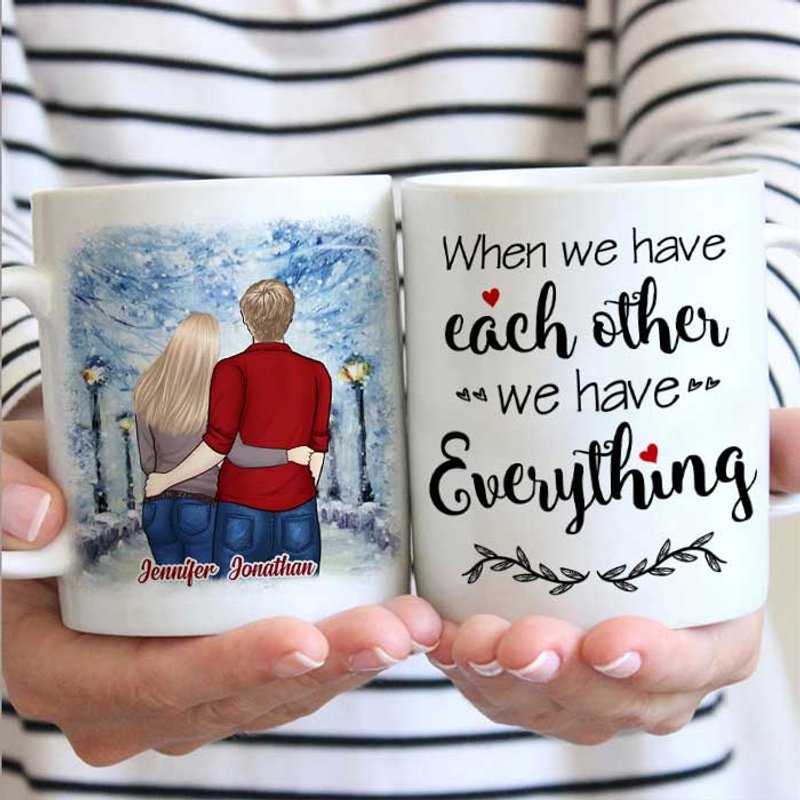 Jennifer Jonathan
When we have
each other
we have
Everything